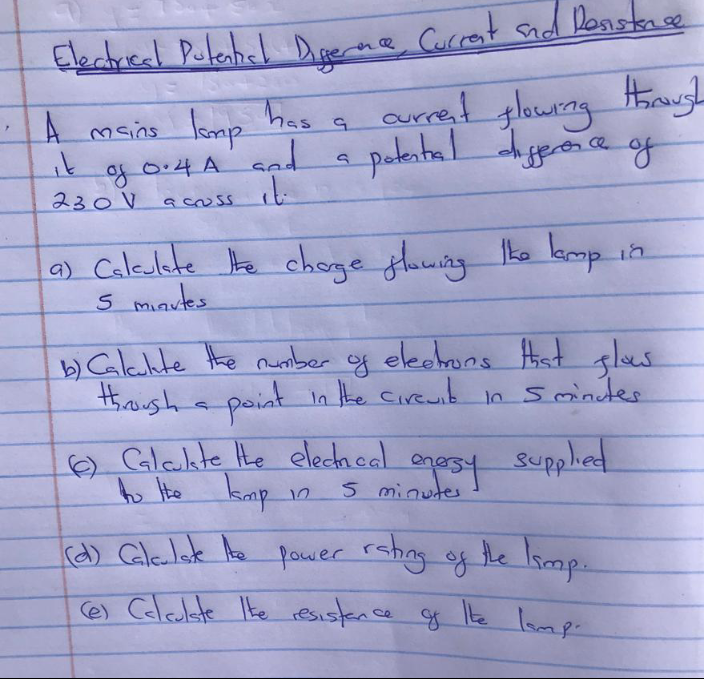 Electrical Potential Difference, Current and Resistance
A mains lamp has a current flowing through
it of 0.4 A and a potential difference of
230 V across it.
a) Calculate the charge flowing the lamp in
5 minutes
b) Calculate the number of electrons that flows
through a point in the circuit in 5 minutes
(c) Calculate the electrical energy supplied
to the lamp in 5 minutes
(d) Calculate the power rating of the lamp.
(e) Calculate the resistance of the lamp.